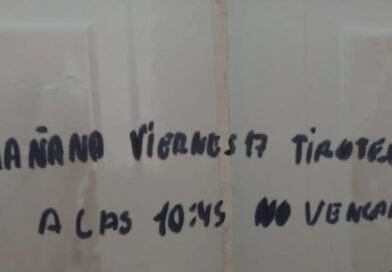 AÑANO VIERNES 17 TIROTE
A LAS 10:45 NO VENGA